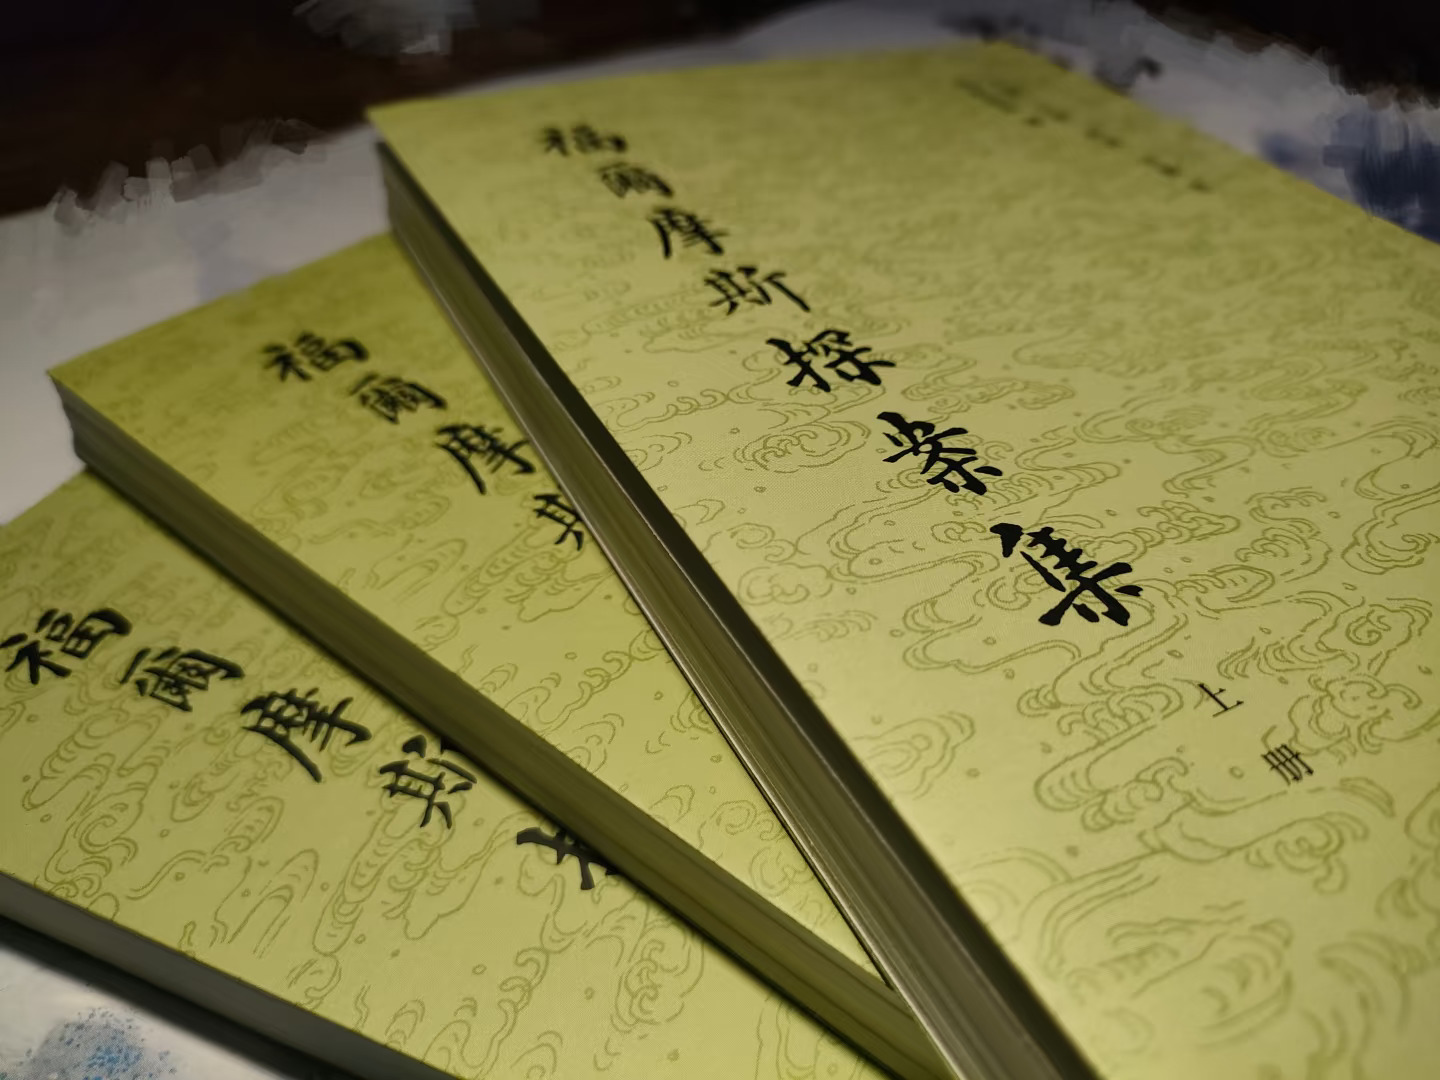 福爾摩斯探案集
上册
福爾摩斯
福爾摩斯